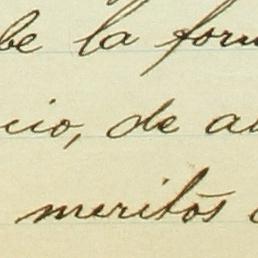 be la form
cio, de a
meritos